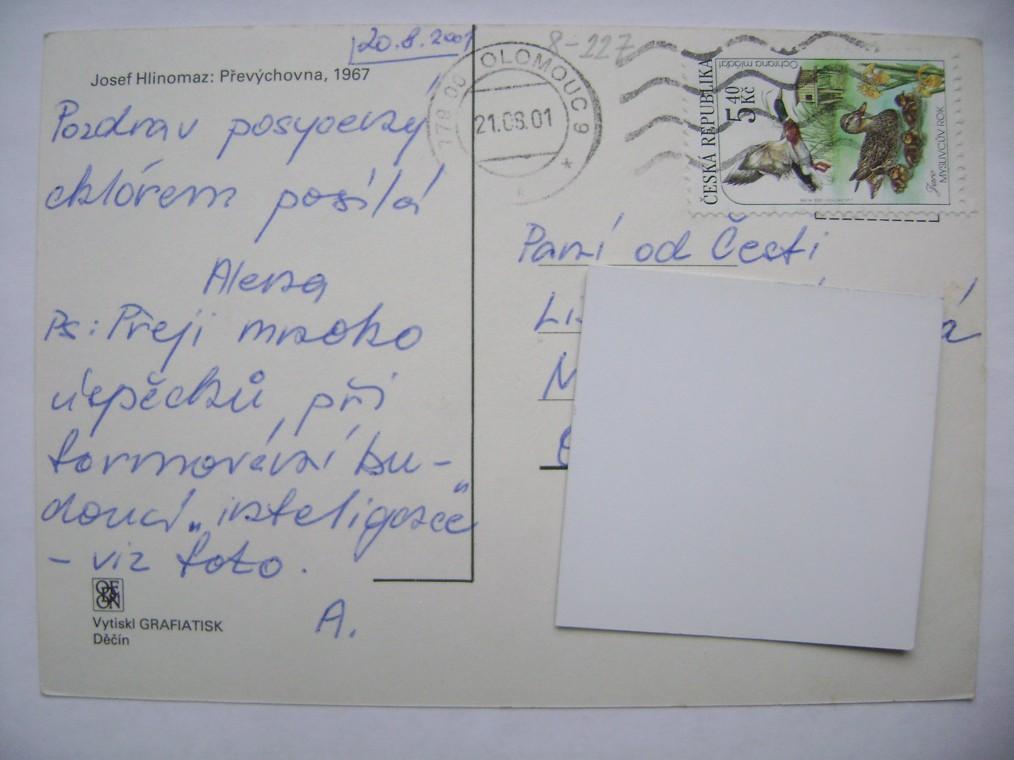 20.8.2001
8-227
Josef Hlinomaz: Převýchovna, 1967
Pozdrav posypený
chlórem posílá
Alena
Ps: Přeji mnoho
úspěchů při
formování bu-
doucí „inteligence"
- viz foto.
A.
Vytiskl GRAFIATISK
Děčín
778 00 OLOMOUC 9
21.08.01
ČESKÁ REPUBLIKA
5 40 Kč
Ochrana mláďat
Jaro
MYSLIVCŮV ROK
Paní od Češti